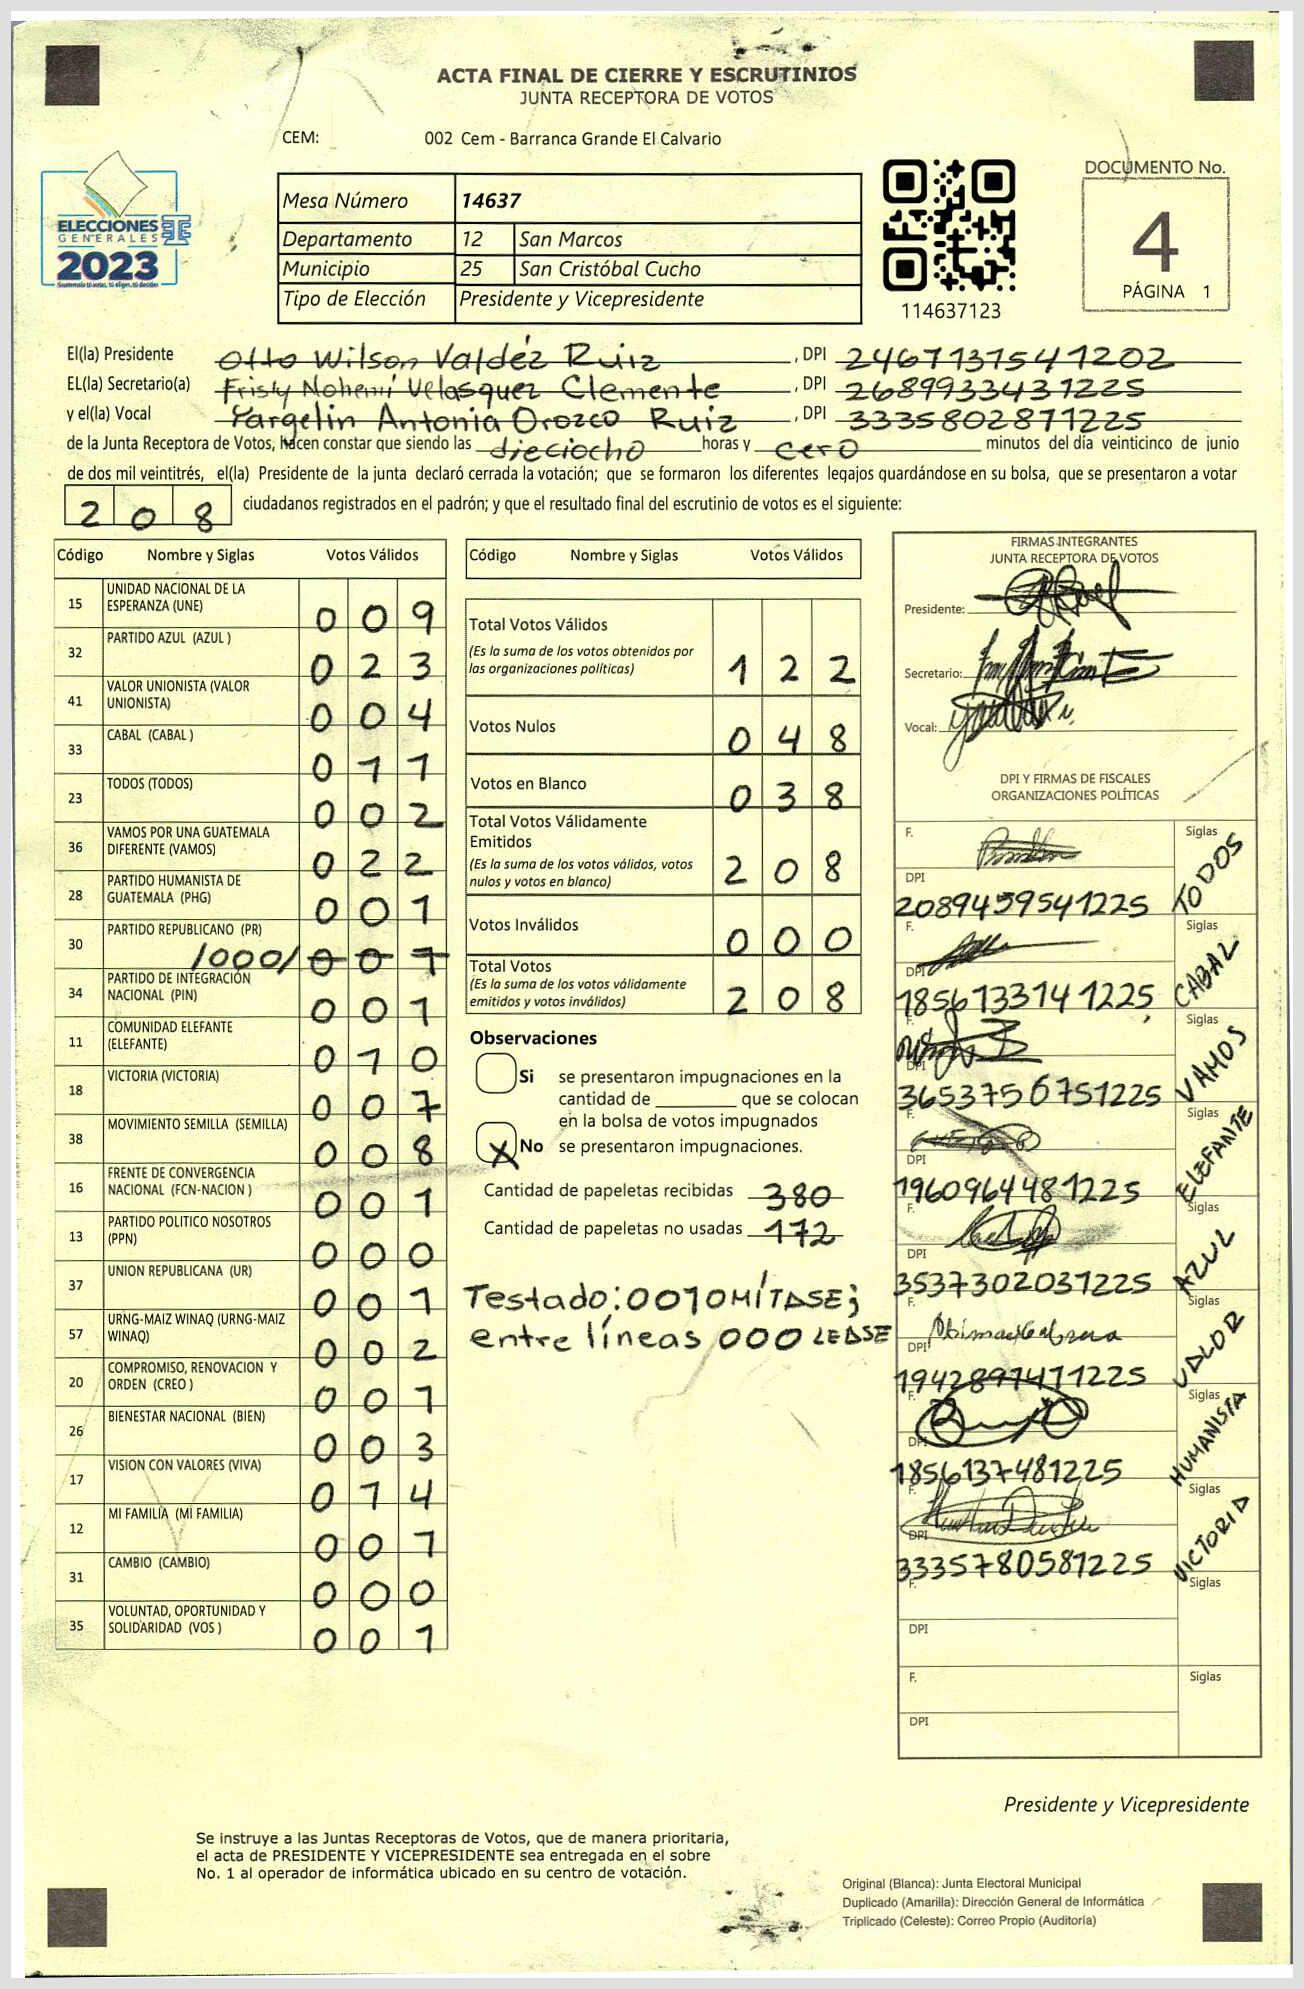 ACTA FINAL DE CIERRE Y ESCRUTINIOS
JUNTA RECEPTORA DE VOTOS
CEM: 002 Cem - Barranca Grande El Calvario
ELECCIONES
GENERALES
2023
Mesa Número 14637
Departamento 12 San Marcos
Municipio 25 San Cristóbal Cucho
Tipo de Elección Presidente y Vicepresidente
114637123
DOCUMENTO No.
4
PÁGINA 1
El(la) Presidente Otto Wilson Valdéz Ruiz, DPI 2467131541202
EL(la) Secretario(a) Fristy Nohemí Velasquez Clemente, DPI 2689933431225
y el(la) Vocal Yargelin Antonia Orozco Ruiz, DPI 3335802871225
de la Junta Receptora de Votos, hacen constar que siendo las dieciocho horas y cero minutos del día veinticinco de junio
de dos mil veintitrés, el(la) Presidente de la junta declaró cerrada la votación; que se formaron los diferentes legajos guardándose en su bolsa, que se presentaron a votar
208 ciudadanos registrados en el padrón; y que el resultado final del escrutinio de votos es el siguiente:
Código Nombre y Siglas Votos Válidos
15 UNIDAD NACIONAL DE LA
ESPERANZA (UNE) 009
32 PARTIDO AZUL (AZUL ) 023
41 VALOR UNIONISTA (VALOR
UNIONISTA) 004
33 CABAL (CABAL ) 011
23 TODOS (TODOS) 002
36 VAMOS POR UNA GUATEMALA
DIFERENTE (VAMOS) 022
28 PARTIDO HUMANISTA DE
GUATEMALA (PHG) 001
30 PARTIDO REPUBLICANO (PR)
/000/ 001
34 PARTIDO DE INTEGRACIÓN
NACIONAL (PIN) 001
11 COMUNIDAD ELEFANTE
(ELEFANTE) 010
18 VICTORIA (VICTORIA) 007
38 MOVIMIENTO SEMILLA (SEMILLA) 008
16 FRENTE DE CONVERGENCIA
NACIONAL (FCN-NACION ) 001
13 PARTIDO POLITICO NOSOTROS
(PPN) 000
37 UNION REPUBLICANA (UR) 001
57 URNG-MAIZ WINAQ (URNG-MAIZ
WINAQ) 002
20 COMPROMISO, RENOVACION Y
ORDEN (CREO ) 001
26 BIENESTAR NACIONAL (BIEN) 003
17 VISION CON VALORES (VIVA) 014
12 MI FAMILIA (MI FAMILIA) 001
31 CAMBIO (CAMBIO) 000
35 VOLUNTAD, OPORTUNIDAD Y
SOLIDARIDAD (VOS ) 001
Código Nombre y Siglas Votos Válidos
Total Votos Válidos
(Es la suma de los votos obtenidos por
las organizaciones políticas) 122
Votos Nulos 048
Votos en Blanco 038
Total Votos Válidamente
Emitidos
(Es la suma de los votos válidos, votos
nulos y votos en blanco) 208
Votos Inválidos 000
Total Votos
(Es la suma de los votos válidamente
emitidos y votos inválidos) 208
Observaciones
Si se presentaron impugnaciones en la
cantidad de ________ que se colocan
en la bolsa de votos impugnados
X No se presentaron impugnaciones.
Cantidad de papeletas recibidas 380
Cantidad de papeletas no usadas 172
Testado: 001 OMÍTASE;
entre líneas 000 LEASE
FIRMAS INTEGRANTES
JUNTA RECEPTORA DE VOTOS
Presidente:
Secretario:
Vocal:
DPI Y FIRMAS DE FISCALES
ORGANIZACIONES POLÍTICAS
F. Siglas
DPI
2089459541225 TODOS
F. Siglas
DPI
1856133141225 CABAL
F. Siglas
DPI
3653756751225 VAMOS
F. Siglas
DPI
1960964481225 ELEFANTE
F. Siglas
DPI
3537302031225 AZUL
F. Siglas
DPI
1942897411225 VALOR
F. Siglas
DPI
1856137481225 HUMANISTA
F. Siglas
DPI
3335780581225 VICTORIA
F. Siglas
DPI
F. Siglas
DPI
Presidente y Vicepresidente
Se instruye a las Juntas Receptoras de Votos, que de manera prioritaria,
el acta de PRESIDENTE Y VICEPRESIDENTE sea entregada en el sobre
No. 1 al operador de informática ubicado en su centro de votación.
Original (Blanca): Junta Electoral Municipal
Duplicado (Amarilla): Dirección General de Informática
Triplicado (Celeste): Correo Propio (Auditoría)